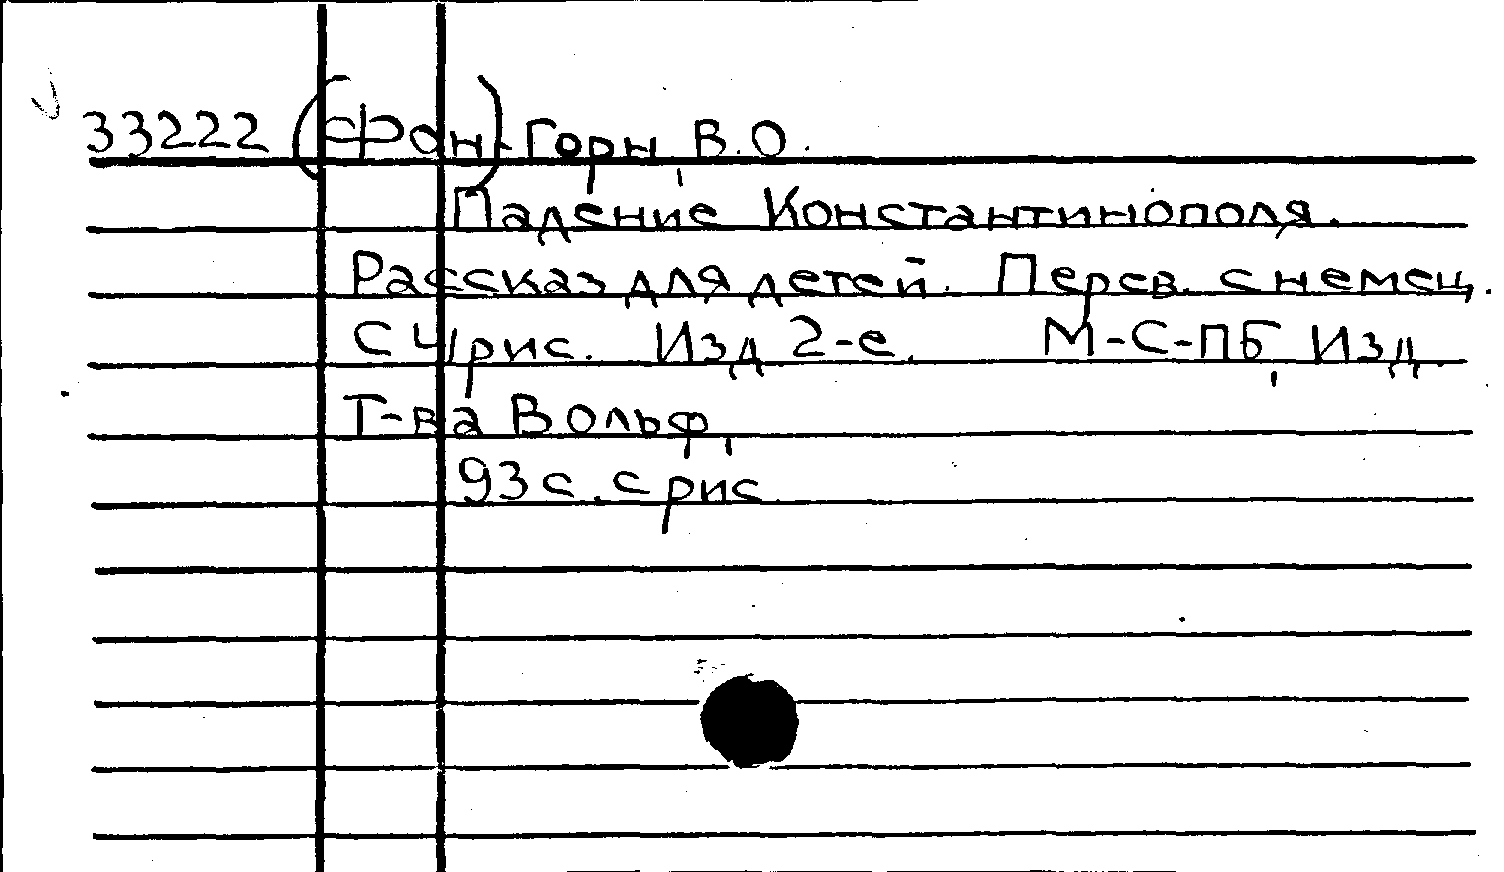 33222 (Фон)-Горн, В.О.
Падение Константинополя.
Рассказ для детей. Перев. с немец.
С 4 рис. Изд 2-е. М-С-ПБ, Изд.
Т-ва Вольф,
93 с. с рис.